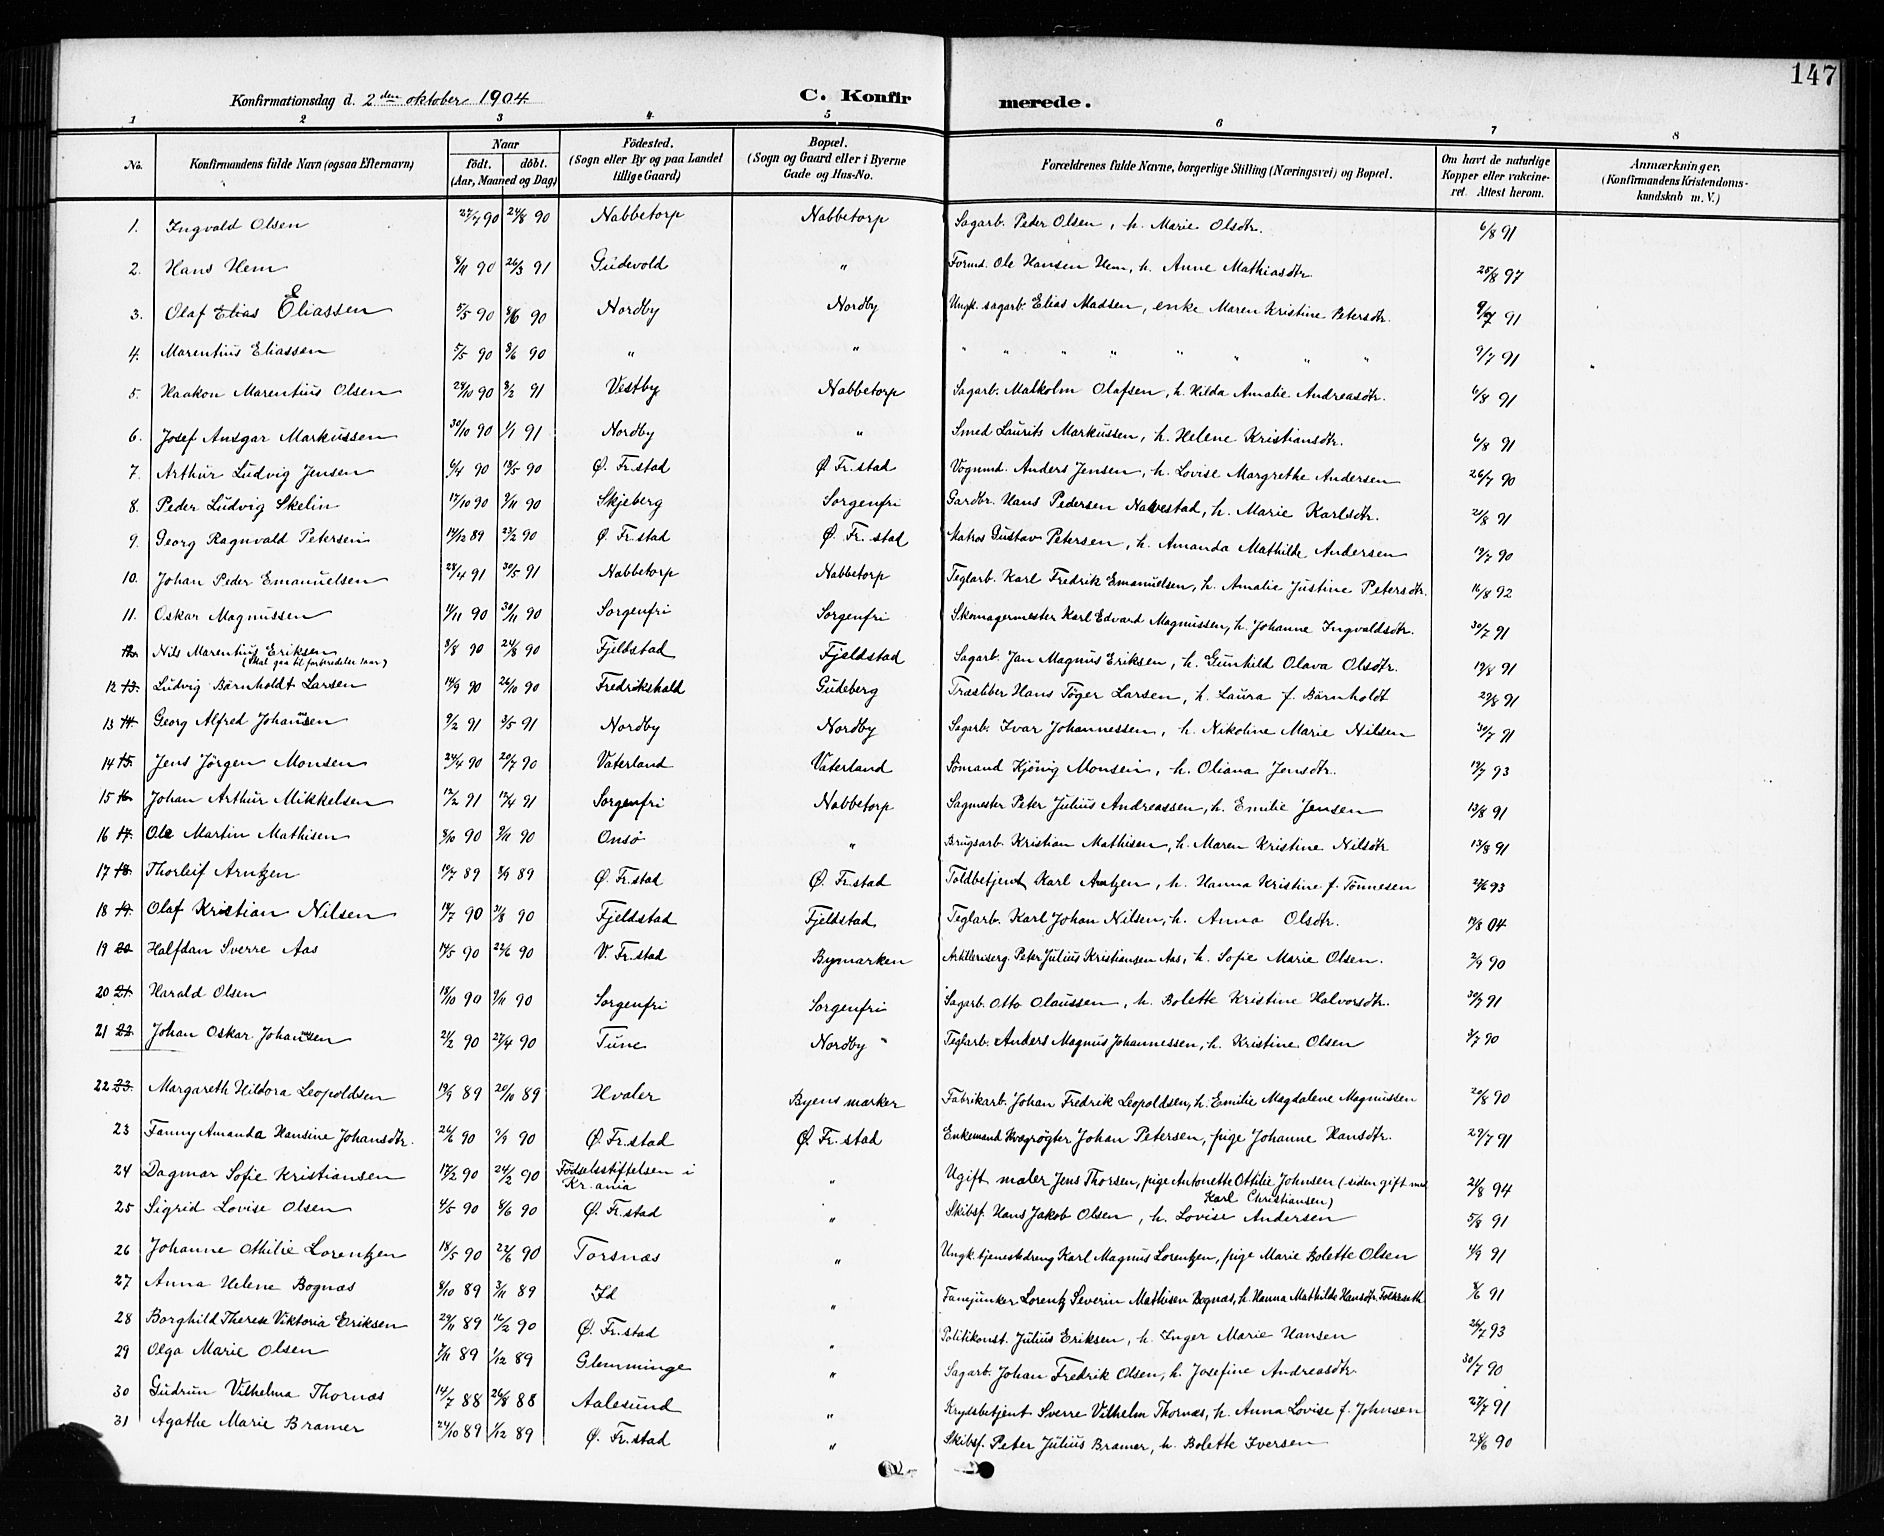 147
Konfirmationsdag d. 2den oktober 1904. C. Konfirmerede.
1 2 3 4. 5 6 7 8
No. Konfirmandens fulde Navn (ogsaa Efternavn) Naar født. døbt. (Aar, Maaned og Dag) Fødested. (Sogn eller By og paa Landet tillige Gaard) Bopæl. (Sogn og Gaard eller i Byerne Gade og Hus-No. Forældrenes fulde Navne, borgerlige Stilling (Næringsvei) og Bopæl. Om havt de naturlige Kopper eller vakcineret. Attest herom. Anmærkninger. (Konfirmandens Kristendomskundskab m. V.)
1. Ingvald Olsen 27/7 90 24/8 90 Nabbetorp Nabbetorp Sagarb. Peter Olsen, h. Marie Olsdtr. 6/8 91
2. Hans Hem 8/11 90 26/3 91 Gudevold " Formd. Ole Hansen Hem, h. Anne Mathiasdtr 25/8 97
3. Olaf Elias Eliassen 5/5 90 8/6 90 Nordby Nordby Ungk. sagarb. Elias Madsen, enke Maren Kristine Petersdtr. 9/7 91
4. Marentius Eliassen 5/5 90 8/6 90 " " " " " " " " " " 9/7 91
5. Haakon Marentius Olsen 24/10 90 8/2 91 Vestby Nabbetorp Sagarb. Malkolm Olafsen, h. Hilda Amalie Andreasdtr. 6/8 91
6. Josef Ansgar Markussen 30/10 90 1/1 91 Nordby " Smed Laurits Markussen, h. Helene Kristiansdtr. 6/8 91
7. Arthur Ludvig Jensen 6/4 90 18/5 90 Ø. Fr.stad Ø Fr.stad Vognmd. Anders Jensen, h. Lovise Margrethe Andersen 26/7 90
8. Peder Ludvig Skelin 17/10 90 9/11 90 Skjeberg Sorgenfri Gardbr. Hans Pedersen Navestad, h. Marie Karlsdtr. 21/8 91
9. Georg Ragnvald Petersen 14/12 89 23/2 90 Ø. Fr.stad Ø. Fr.stad Matros Gustav Petersen, h. Amanda Mathilde Andersen 19/7 90
10. Johan Peder Emanuelsen 28/4 91 30/5 91 Nabbetorp Nabbetorp Teglarb. Karl Fredrik Emanuelsen, h. Amalie Justine Petersdtr. 16/8 92
11. Oskar Magnussen 11/11 90 30/11 90 Sorgenfri Sorgenfri Skomagermester Karl Edvard Magnussen, h. Johanne Ingvaldsdtr. 30/7 91
12. Nils Marentius Eriksen 3/8 90 24/8 90 Fjeldstad Fjeldstad Sagarb. Jan Magnus Eriksen, h. Gunhild Olava Olsdtr. 19/8 91
(skal gaa til forberedelse iaar)
12 13. Ludvig Bärnholdt Larsen 14/9 90 26/10 90 Fredrikshald Gudeberg Træsliber Hans Töger Larsen, h. Laura f. Bärnholdt 29/8 91
13 14. Georg Alfred Johannsen 9/2 91 3/5 91 Nordby Nordby Sagarb. Ivar Johannessen, h. Nikoline Marie Nilsen 30/7 91
14 15. Jens Jörgen Monsen 24/4 90 20/7 90 Vaterland Vaterland Sömand Kjönig Monsen, h. Oliana Jensdtr. 19/7 93
15 16. Johan Arthur Mikkelsen 12/2 91 12/4 91 Sorgenfri Nabbetorp Sagmester Peter Julius Andreassen, h. Emilie Jensen 13/8 91
16 17. Ole Martin Mathisen 8/10 90 9/11 90 Onsö " Brugsarb. Kristian Mathisen, h. Maren Kristine Nilsdtr 13/8 91
17 18. Thorleif Arntzen 10/7 89 8/9 89 Ø. Fr.stad Ø. Fr.stad Toldbetjent Karl Arntzen, h. Hanna Kristine f. Tönnesen 27/6 93
18 19. Olaf Kristian Nilsen 14/7 90 31/8 90 Fjeldstad Fjeldstad Teglarb. Karl Johan Nilsen, h. Anna Olsdtr. 19/8 04
19 20. Halfdan Sverre Aas 14/5 90 22/6 90 V. Fr.stad Bymarken Artilleriserg. Peter Julius Kristiansen Aas, h. Sofie Marie Olsen. 2/9 90
20 21. Harald Olsen 18/10 90 9/11 90 Sorgenfri Sorgenfri Sagarb. Otto Olaussen, h. Bolette Kristine Halvorsdtr. 30/7 91
21 22. Johan Oskar Johannsen 21/2 90 27/4 90 Tune Nordby " Teglarb. Anders Magnus Johannessen, h. Kristine Olsen 3/7 90
22 23. Margareth Hildora Leopoldsen 19/9 89 20/10 89 Hvaler Byens marker Fabrikarb. Johan Fredrik Leopoldsen, h. Emilie Magdalene Magnussen 20/8 90
23 Fanny Amanda Hansine Johansdtr. 26/6 90 9/9 90 Ø. Fr.stad Ø. Fr.stad Enkemand Kvægrøgter Johan Petersen, pige Johanne Hansdtr. 29/7 91
24 Dagmar Sofie Kristiansen 12/2 90 24/2 90 Fødselsstiftelsen i Kr.ania " Ugift maler Jens Thorsen, pige Antonette Ottilie Johnsen (siden gift med Karl Christiansen) 21/8 94
25 Sigrid Lovise Olsen 4/5 90 8/6 90 Ø. Fr.stad " Skibsf. Hans Jakob Olsen, h. Lovise Andersen 5/9 91
26 Johanne Othilie Lorentzen 18/5 90 22/6 90 Torsnæs " Ungk. tjenestedreng Karl Magnus Lorentzen, pige Marie Bolette Olsen 4/9 91
27 Anna Helene Bognæs 8/10 89 3/11 89 Id " Fanejunker Lorentz Severin Mathisen Bognæs, h. Hanna Mathilde Hansdtr. 8/6 91
28 Borghild Therese Viktoria Eriksen 29/11 89 16/2 90 Ø. Fr.stad " Politikonst. Julius Eriksen, h. Inger Marie Hansen 26/7 93
29 Olga Marie Olsen 7/11 89 1/12 89 Glemminge " Sagarb. Johan Fredrik Olsen, h. Josefine Andreasdtr. 30/7 90
30 Gudrun Vilhelma Thornæs 14/7 88 26/8 88 Aalesund " Krydsbetjent Sverre Vilhelm Thornæs, h. Anna Lovise f. Johnsen 27/7 91
31 Agathe Marie Bramer 24/10 89 1/12 89 Ø. Fr.stad " Skibsf. Peter Julius Bramer, h. Bolette Iversen 28/6 90